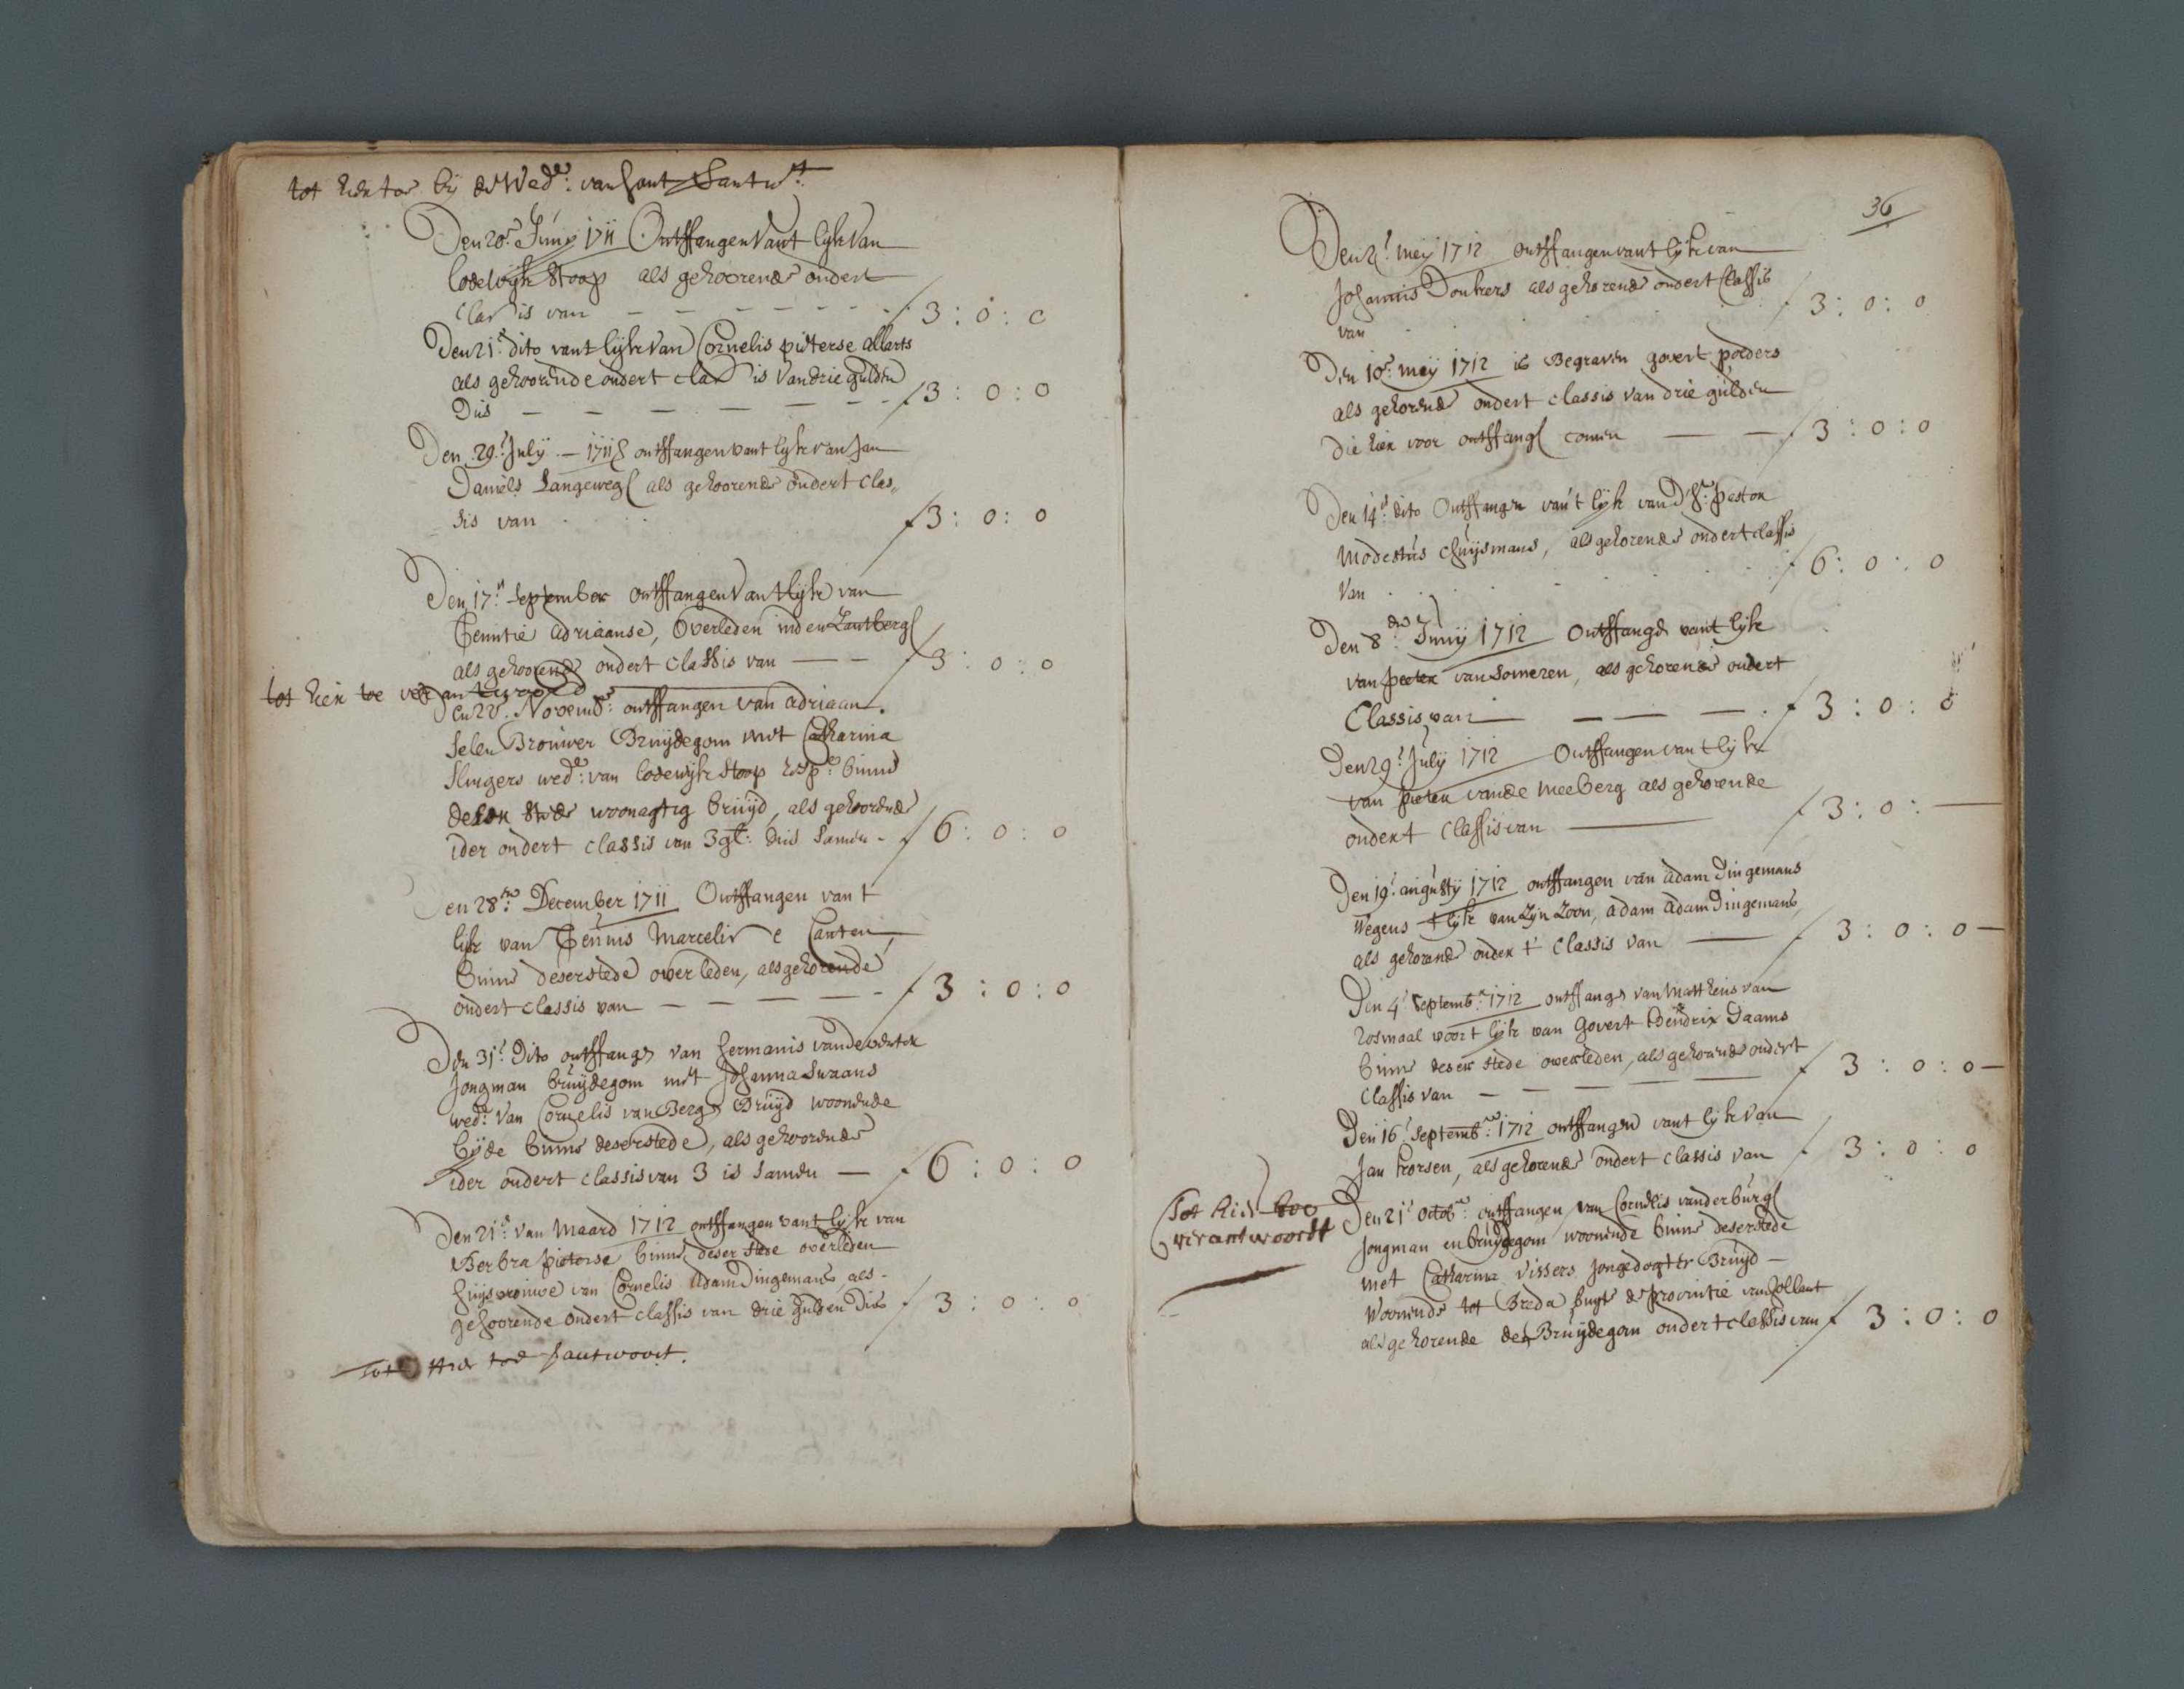 tot hier toe bij de Wed.e van hout
Den 20.e Junij 1711 Ontffangen vant lijk van
lodewijk Stoop als gehoorende ondert
Classis van - - - - - - f 3 : 0 : 0
Den 21.e dito vant lijk van Cornelis pieterse allarts
als gehoorende ondert classis van drie gulden
Dus - - - - - - f 3 : 0 : 0
Den 29.e Julij - 1711 ontffangen vant lijk van Jan
Daniels Langeweg als gehoorende ondert clas„
sis van f 3 : 0 : 0
Den 17.e September ontffangen vant lijk van
Teuntie adriaanse, Overleden inden Lantberg
als gehoorende ondert classis van - - f 3 : 0 : 0
tot hier toe verantwoord
Den 25. Novemb.r ontffangen van adriaan
selen Brouwer Bruijdegom met Catharina
Slingers wed.e van lodewijk Stoop binne
deser stede woonagtig bruijd, als gehoorende
ider ondert classis van 3 gl: dus samen - f 6 : 0 : 0
Den 28.ste December 1711 Ontffangen vant
lijk van Teunis Marcelisse Canten
binne deser stede overleden, als gehorende
ondert classis van - - - - - f 3 : 0 : 0
Den 31.e Dito ontffange van hermanis vande
Jongman bruijdegom met Johanna Swaans
wed.e van Cornelis van Berge Bruijd woonende
bijde binne deser stede, als gehoorende
ider ondert classis van 3 is samen - f 6 : 0 : 0
Den 21.e van Maard 1712 ontffangen vant lijk van
Berbra pieterse binne deser stede overleden
huijsvrouwe van Cornelis Adam Dingemans, als
gehoorende ondert classis van drie gulden Dus f 3 : 0 : 0
Tot Hier toe
36
Den 2.e meij 1712 ontffangen vant lijk van
Johannis Donkers als gehorende ondert Classis
van f 3 : 0 : 0
Den 10.e meij 1712 is Begraven govert polders
als gehorende ondert classis van drie gulden
die hier voor ontffang comen - - f 3 : 0 : 0
Den 14.e dito Ontffangen van't lijk van D'H.r pastor
Modestus Huijsmans, als gehorende ondert classis
Van f 6 : 0 : 0
Den 8.e Junij 1712 Ontffange vant lijk
van peeter van Someren, als gehorende ondert
Classis van - - - f 3 : 0 : 0
Den 29.e Julij 1712 Ontffangen vant lijk
van pieter vande Meeberg als gehorende
ondert Classis van - f 3 : 0 : -
Den 19.e augusty 1712 ontffangen van adam Dingemans
wegens t lijk van Zijn Zoon, adam adam Dingemans,
als gehorende onder t' Classis van - f 3 : 0 : 0 -
Den 4.e Septemb.r 1712 ontffange van Mattheus van
rosmaal voor t lijk van Govert Hendrix Daams
binne deser stede overleden, als gehoorende ondert
Classis van - - - - f 3 : 0 : 0 -
Den 16.e Septemb.r 1712 ontffangen vant lijk van
Jan Korsen, als gehorende ondert classis van f 3 : 0 : 0
Tot hier toe
verantwoordt
Den 21.e octob.r ontffangen van Cornelis vander burg
Jongman en bruijdegom woonende binne deser stede
met Catharina Vissers Jongedogter Bruijd -
Woonende tot Breda buijte de provintie van hollant
als gehorende den Bruijdegom ondert classis van f 3 : 0 : 0